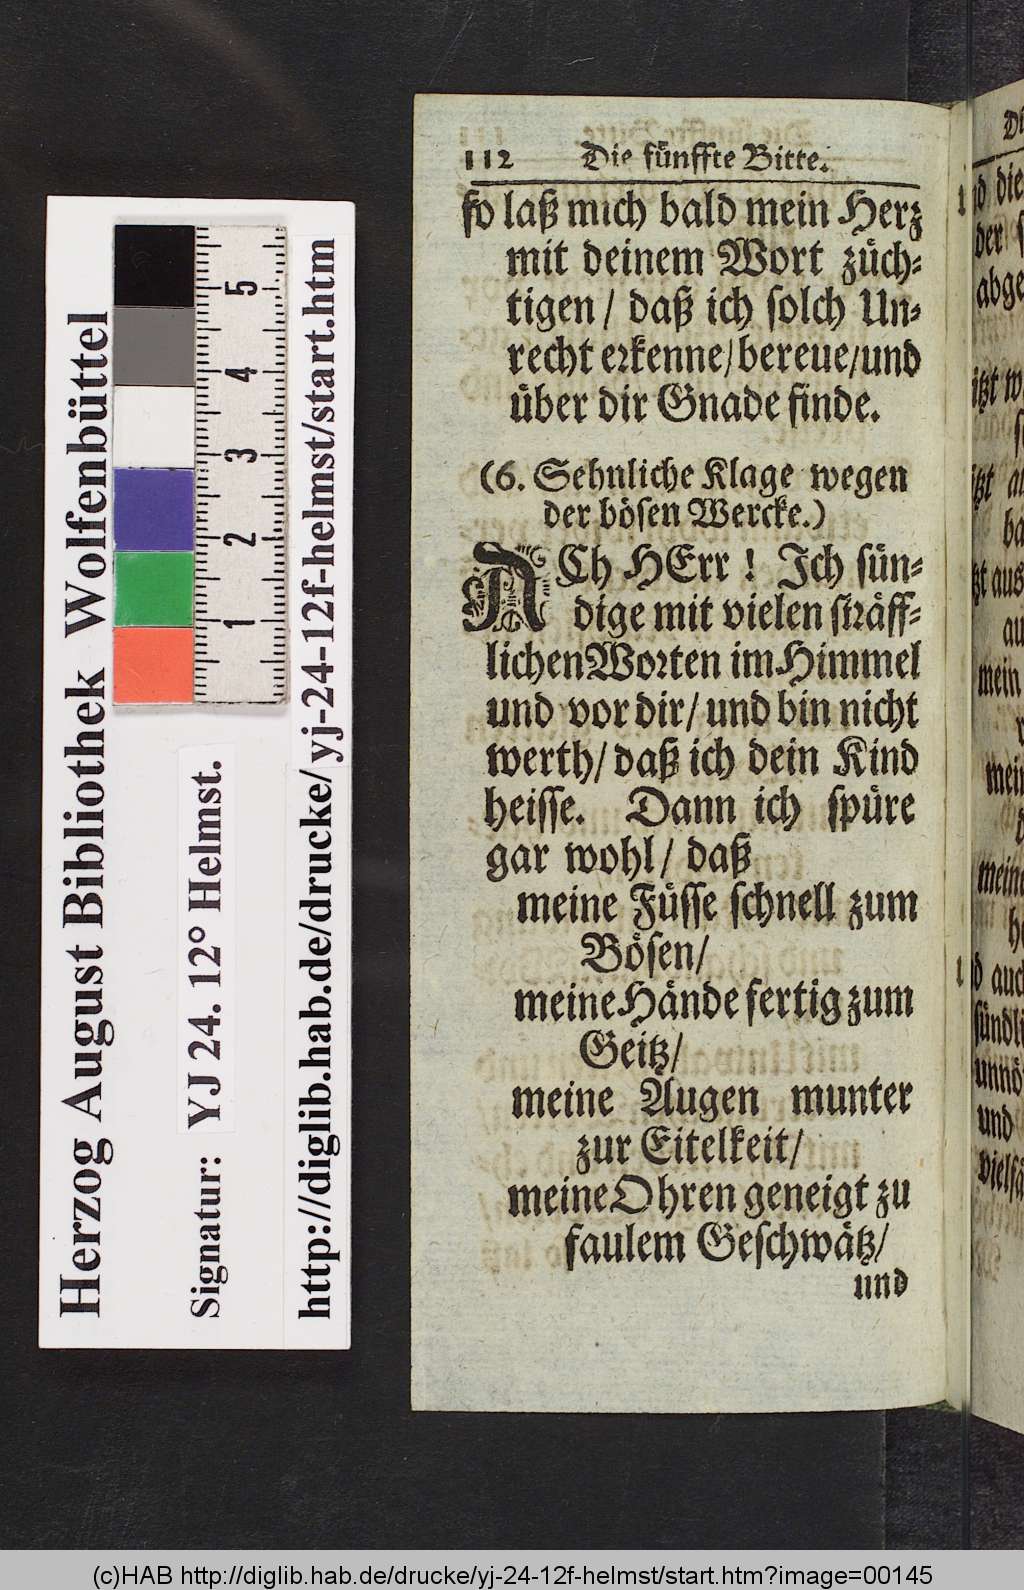 112 Die fünffte Bitte.
so laß mich bald mein Herz
mit deinem Wort züch-
tigen / daß ich solch Un-
recht erkenne/bereue/und
über dir Gnade finde.
(6. Sehnliche Klage wegen
der bösen Wercke.)
ACh HErr ! Ich sün-
dige mit vielen sträff-
lichen Worten im Himmel
und vor dir/ und bin nicht
werth/ daß ich dein Kind
heisse. Dann ich spüre
gar wohl/ daß
meine Füsse schnell zum
Bösen/
meine Hände fertig zum
Geitz/
meine Augen munter
zur Eitelkeit/
meine Ohren geneigt zu
faulem Geschwätz/
und
Herzog August Bibliothek Wolfenbüttel
Signatur: YJ 24. 12° Helmst.
http://diglib.hab.de/drucke/yj-24-12f-helmst/start.htm
1 2 3 4 5
(c)HAB http://diglib.hab.de/drucke/yj-24-12f-helmst/start.htm?image=00145